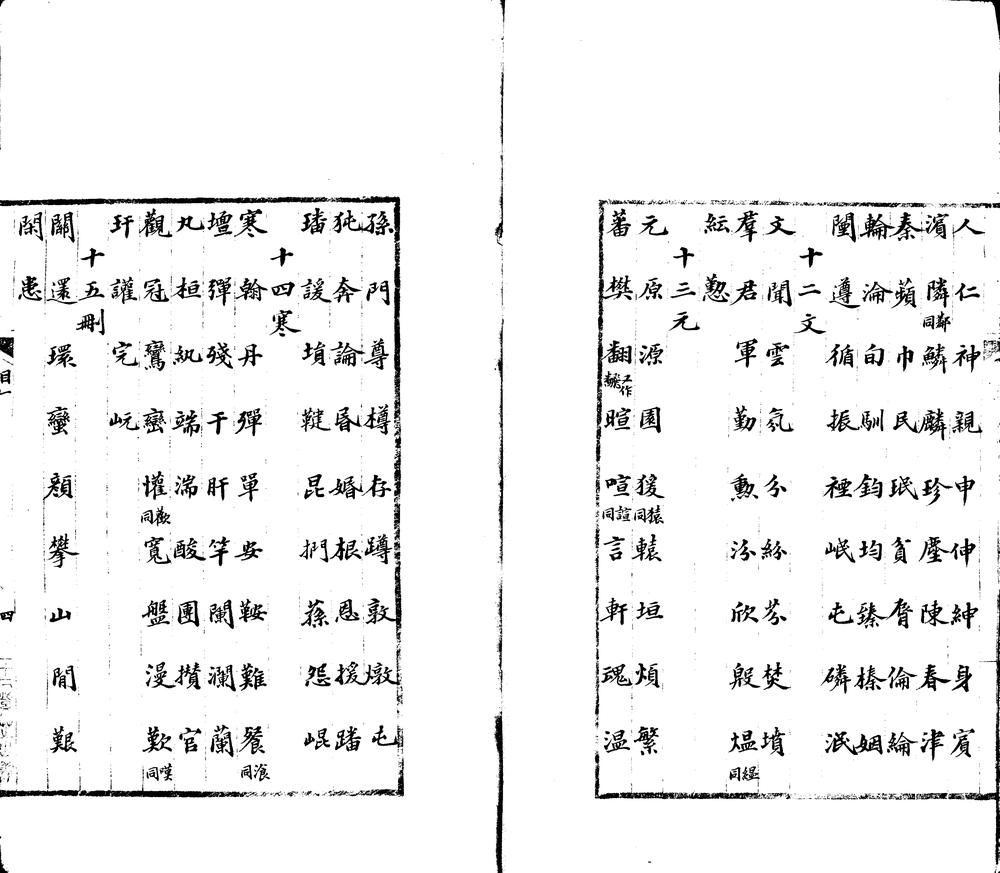 人仁神親申伸紳身賓
濱隣同鄰鱗麟珍塵陳春津
秦蘋巾民珉貧脣倫綸
輪淪旬馴鈞均臻榛姻
闉遵循振禋岷屯磷泯
十二文
文聞雲氛分紛芬焚墳
羣君軍勤勲汾欣殷煴同緼
紜懃
十三元
元原源園猨同猿轅垣煩繁
蕃樊翻暄喧同諠言軒魂温
孫門尊樽存蹲敦燉屯
㹠奔論昏婚根恩援蹯
璠諼塤鞬昆捫蓀怨崐
十四寒
寒翰丹彈單安鞍難餐同湌
壇彈殘干肝竿闌瀾蘭
丸桓紈端湍酸團攅官
觀冠鸞巒懽同歡寛盤漫歎同嘆
玕讙完岏
十五刪
關還環蠻顔攀山閒艱
閑患
目一
四